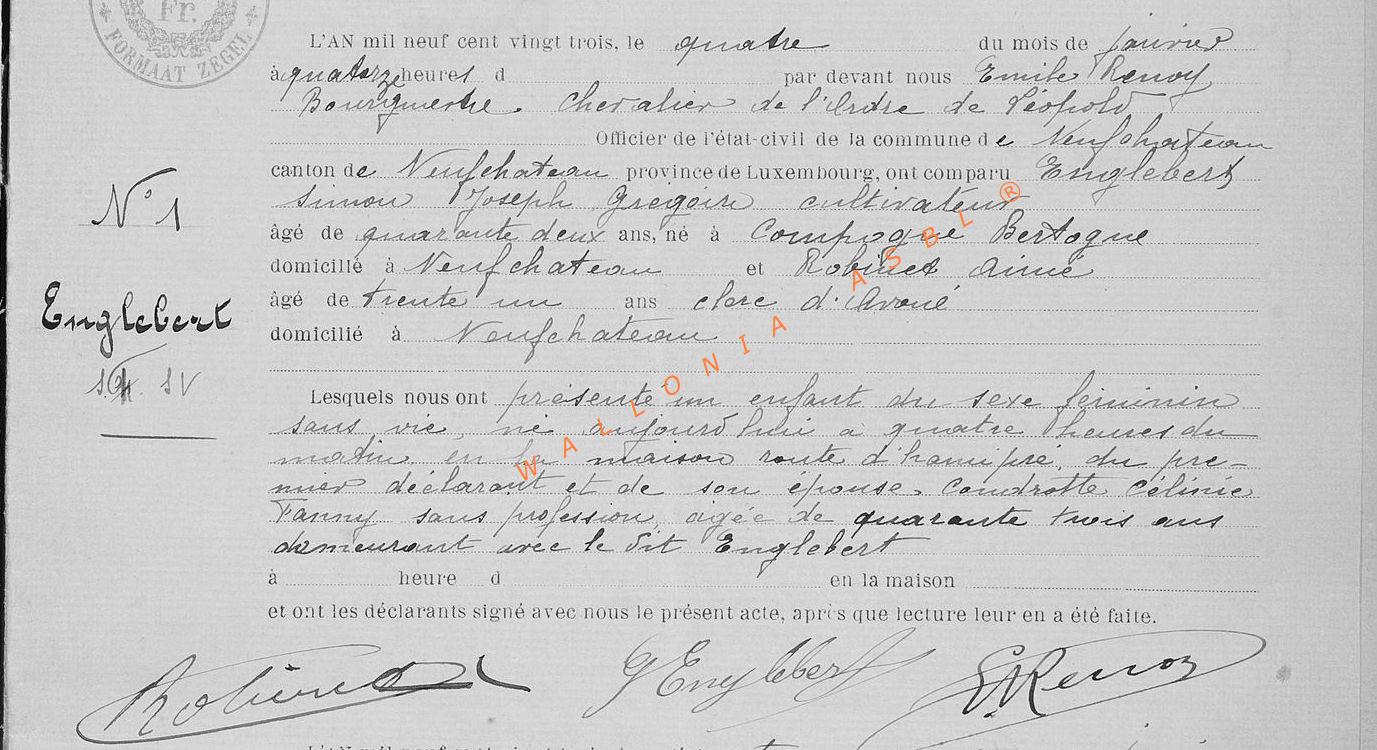 Fr.
FORMAAT ZEGEL
L'AN mil neuf cent vingt trois, le quatre du mois de janvier
à quatorze heures d par devant nous Emile Renoy
Bourgmestre, Chevalier de l'Ordre de Léopold
Officier de l'état-civil de la commune de Neufchateau
canton de Neufchateau province de Luxembourg, ont comparu Englebert
N° 1
Simon Joseph Grégoire cultivateur
âgé de quarante deux ans, né à Compogne Bertogne
domicilié à Neufchateau et Robinet Aimé
âgé de trente un ans clerc d'avoué
Englebert
domicilié à Neufchateau
Lesquels nous ont présenté un enfant du sexe féminin
sans vie, né aujourd'hui à quatre heures du
matin en la maison route d'hamipré, du pre-
mier déclarant et de son épouse, Condrotte Célinie
Fanny sans profession, agée de quarante trois ans
demeurant avec le dit Englebert
à heure d en la maison
et ont les déclarants signé avec nous le présent acte, après que lecture leur en a été faite.
Robinet GEnglebert E.Renoy
WALLONIA ASBL®